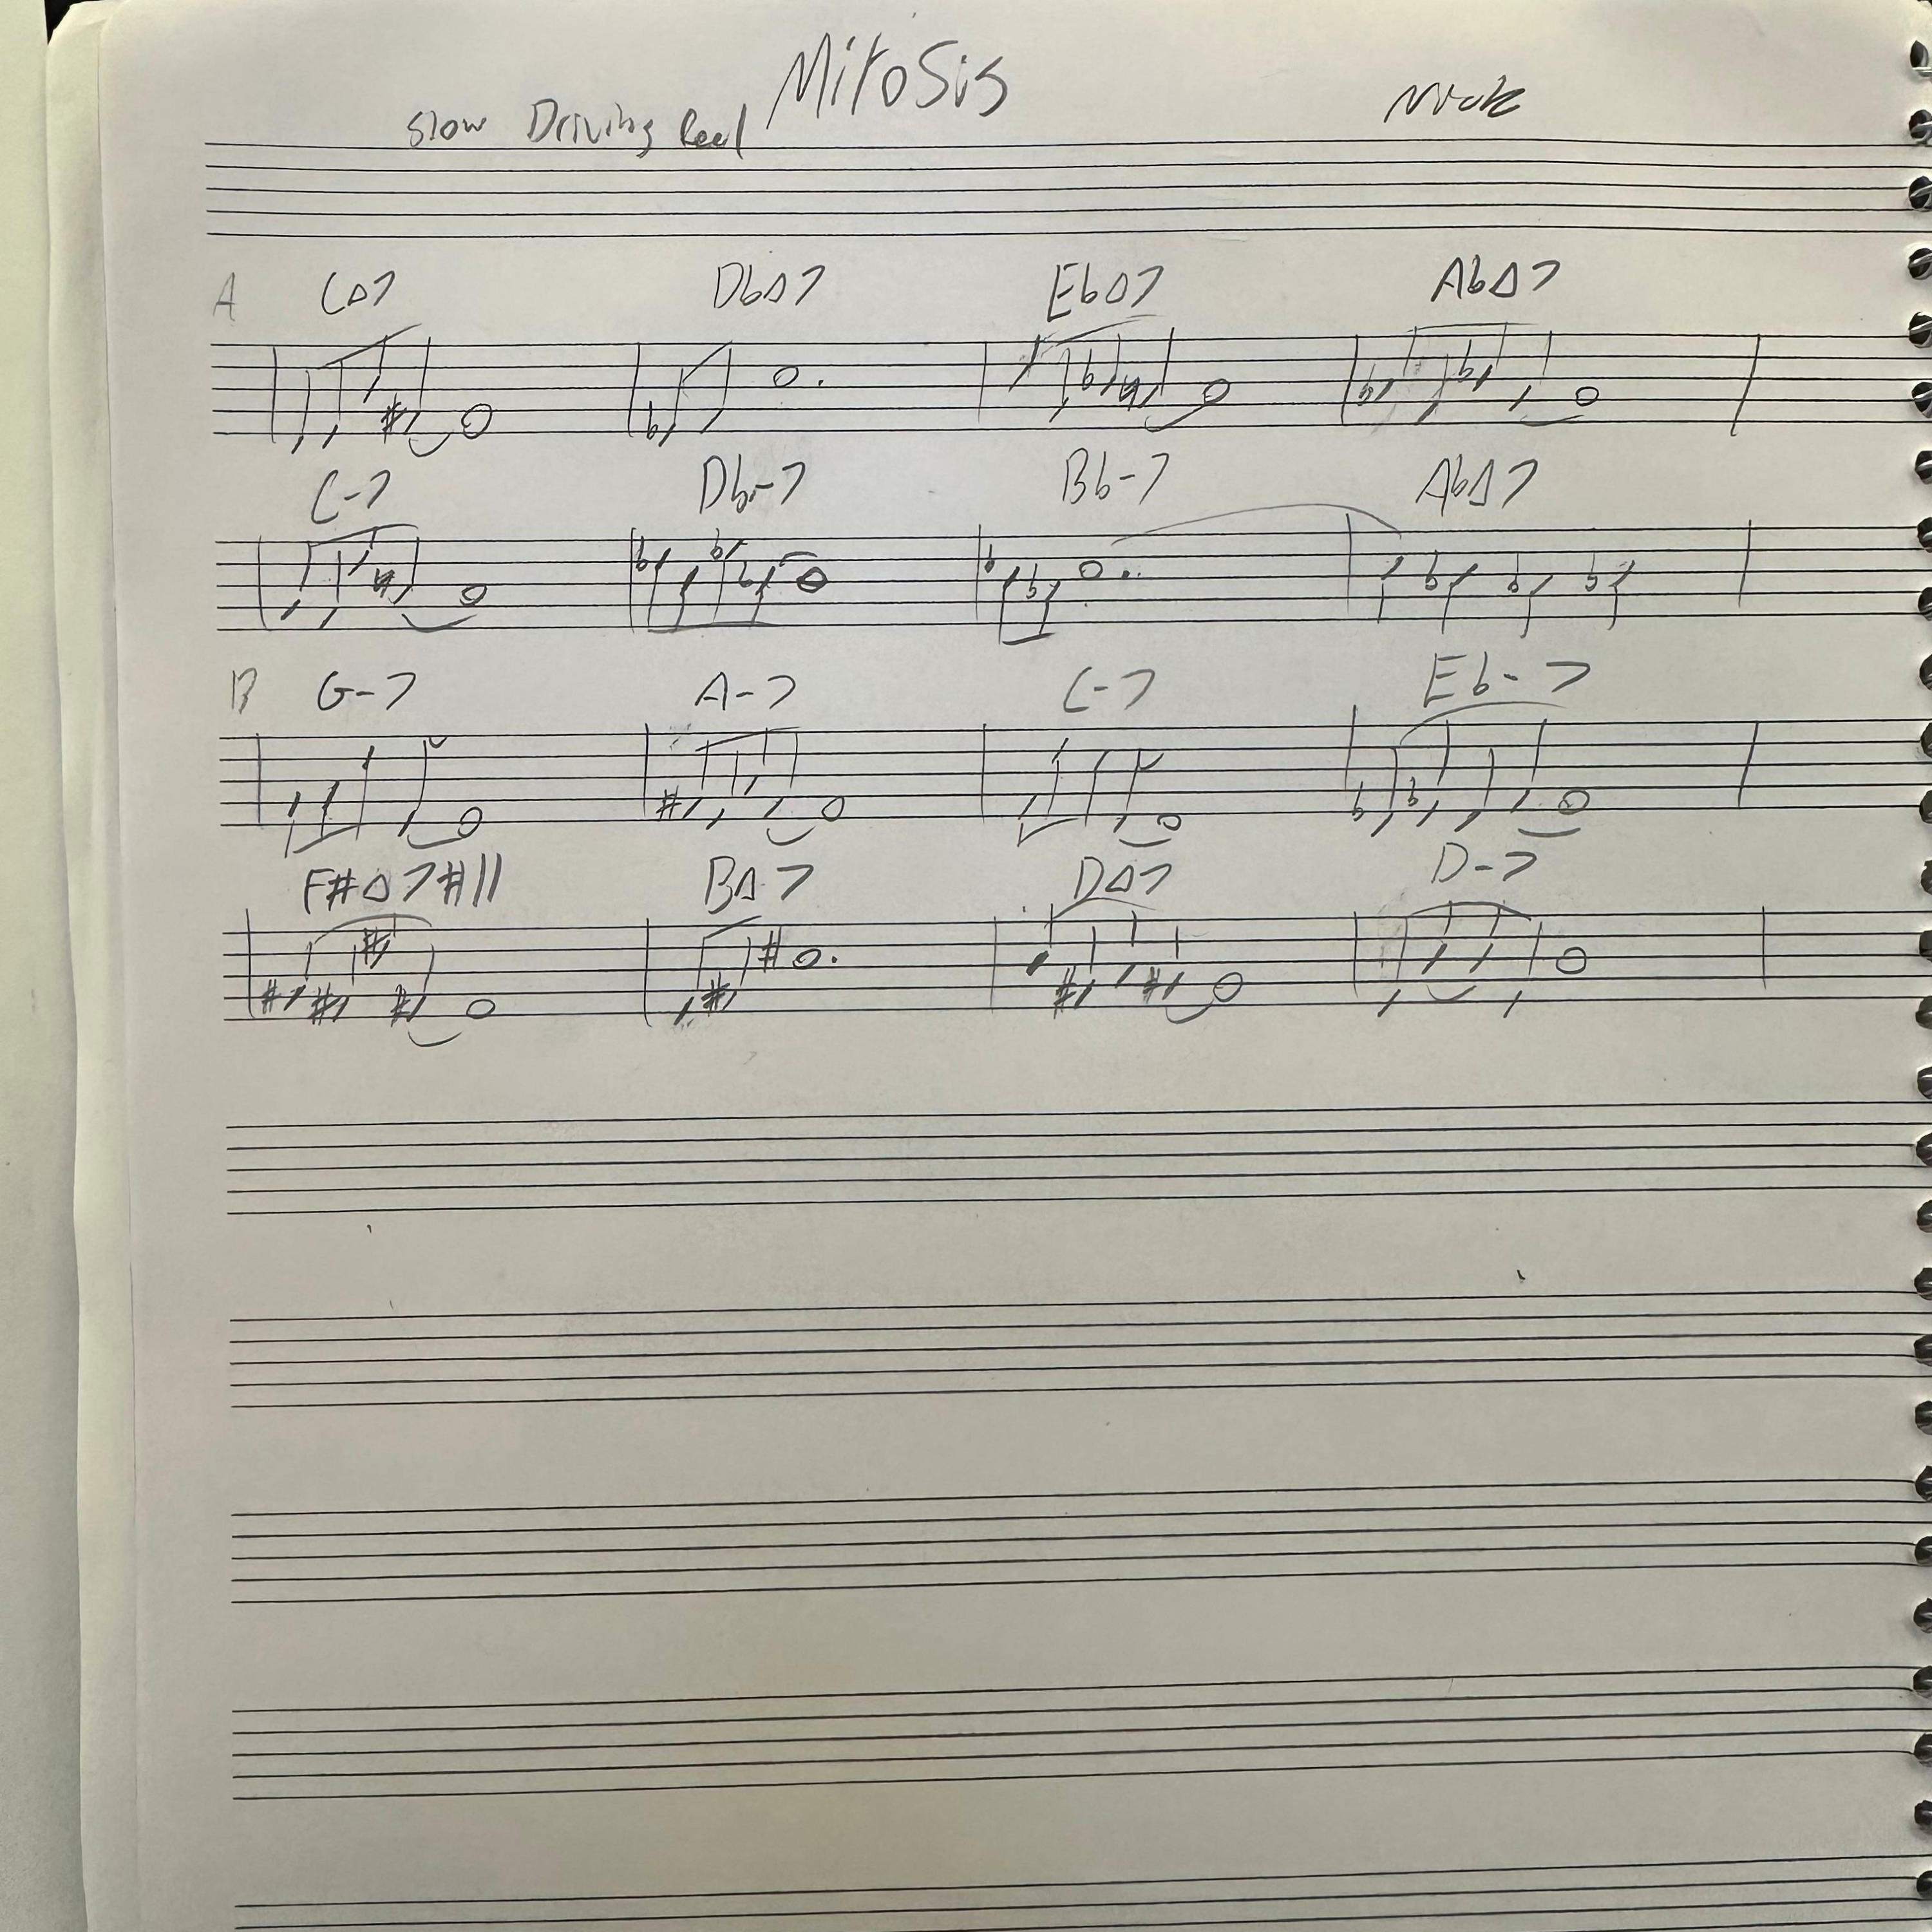 Mitosis
Slow Driving Nick
A C△7 Db△7 Eb△7 Ab△7
C-7 Db-7 Bb-7 Ab△7
B G-7 A-7 C-7 Eb-7
F#△7#11 B△7 D△7 D-7